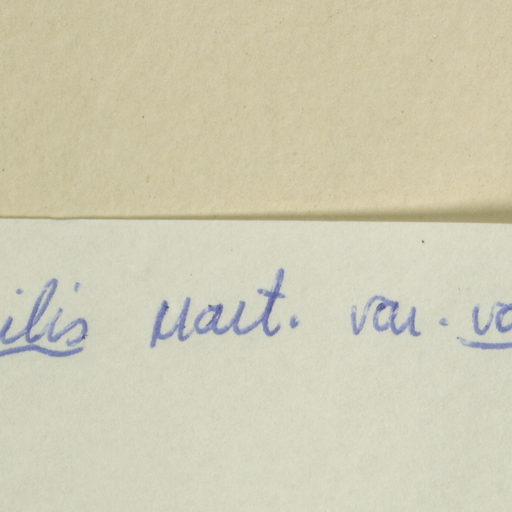 ilis Mart. var. va